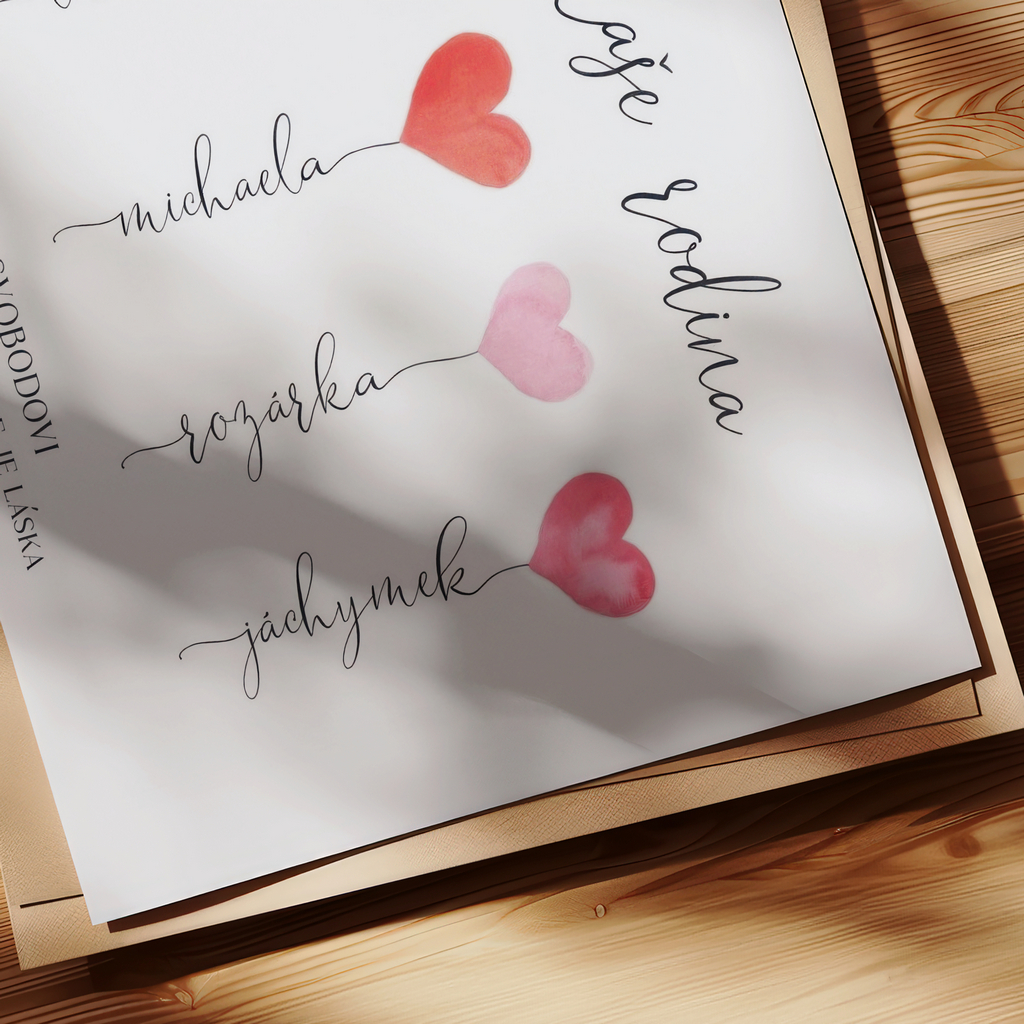 aše rodina
michaela
rozárka
jáchymek
SVOBODOVI
JE LÁSKA